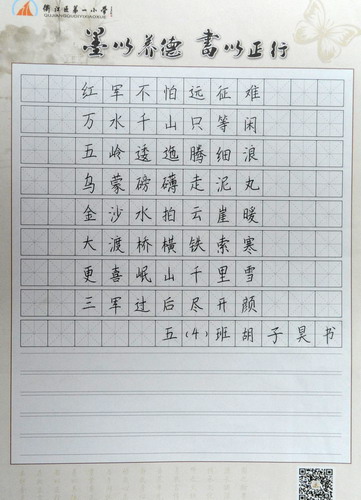 衢江区第一小学
墨以养德 书以正行
红军不怕远征难
万水千山只等闲
五岭逶迤腾细浪
乌蒙磅礴走泥丸
金沙水拍云崖暖
大渡桥横铁索寒
更喜岷山千里雪
三军过后尽开颜
五(4)班胡子昊书